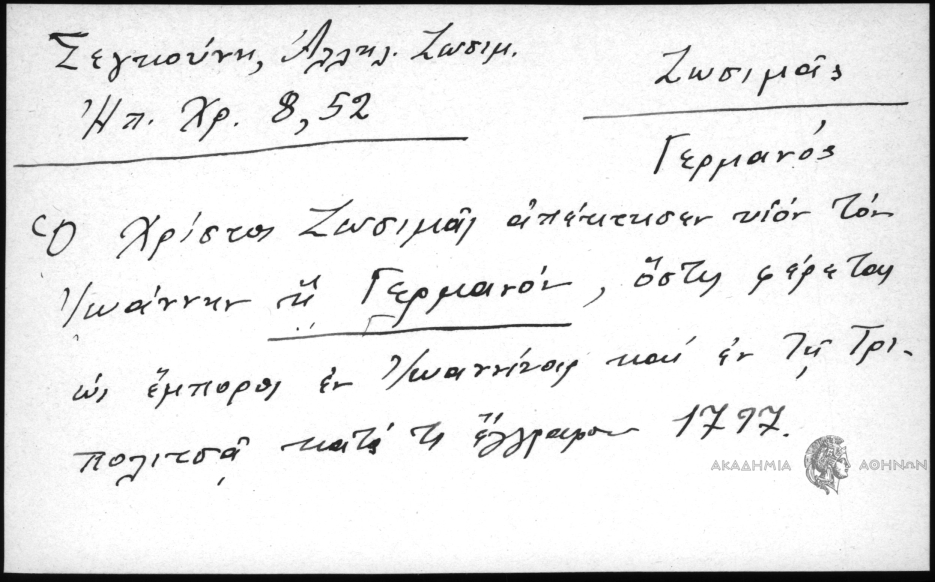 Σεγκούνη, Ἀλλκλ. Ζωσιμ.
Ἠπ. Χρ. 8,52
Ζωσιμᾶς
Γερμανός
Ὁ Χρίστος Ζωσιμᾶς ἀπέκτησεν υἱόν τόν
Ἰωάννην ἤ Γερμανόν, ὅστις φέρεται
ὡς ἔμπορος ἐν Ἰωαννίνοις καί ἐν τῇ Τρι-
πολιτσᾷ κατά τι ἔγγραφον 1797.
ΑΚΑΔΗΜΙΑ ΑΘΗΝΩΝ